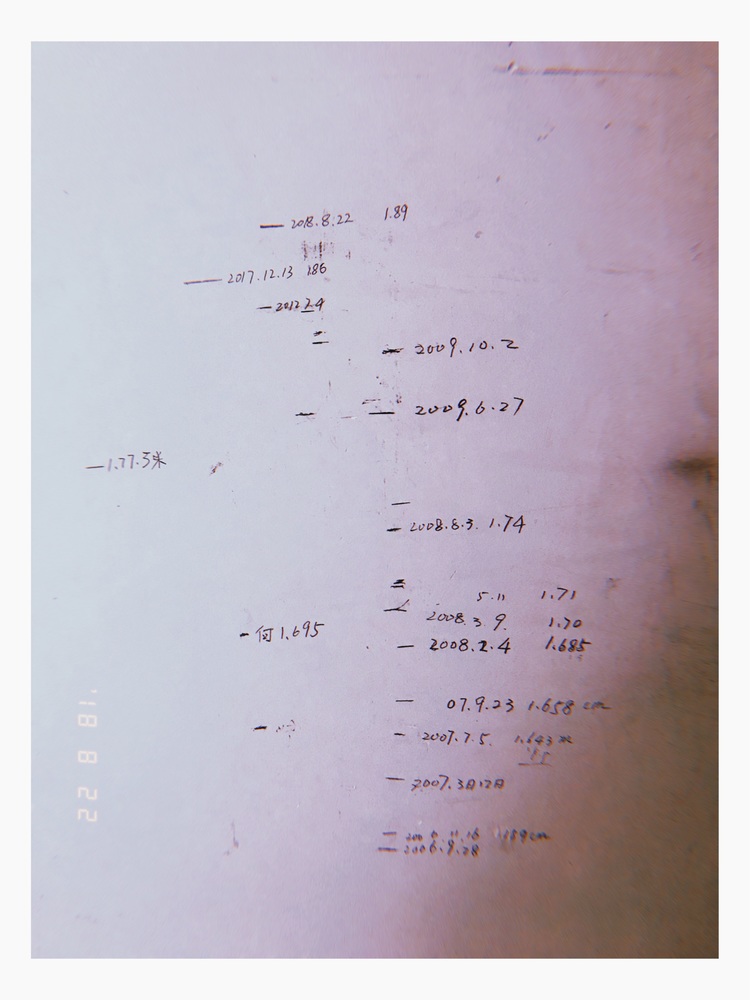 2018.8.22 1.89
2017.12.13 186
2012.2.4
2009.10.2
2009.6.27
1.77.3米
2008.8.3. 1.74
5.11 1.71
2008.3.9. 1.70
何1.695
2008.2.4 1.685
07.9.23 1.658 cm
2007.7.5. 1.643米
2007.3月12日
2006.11.16 159cm
2006.9.28
'18 8 22